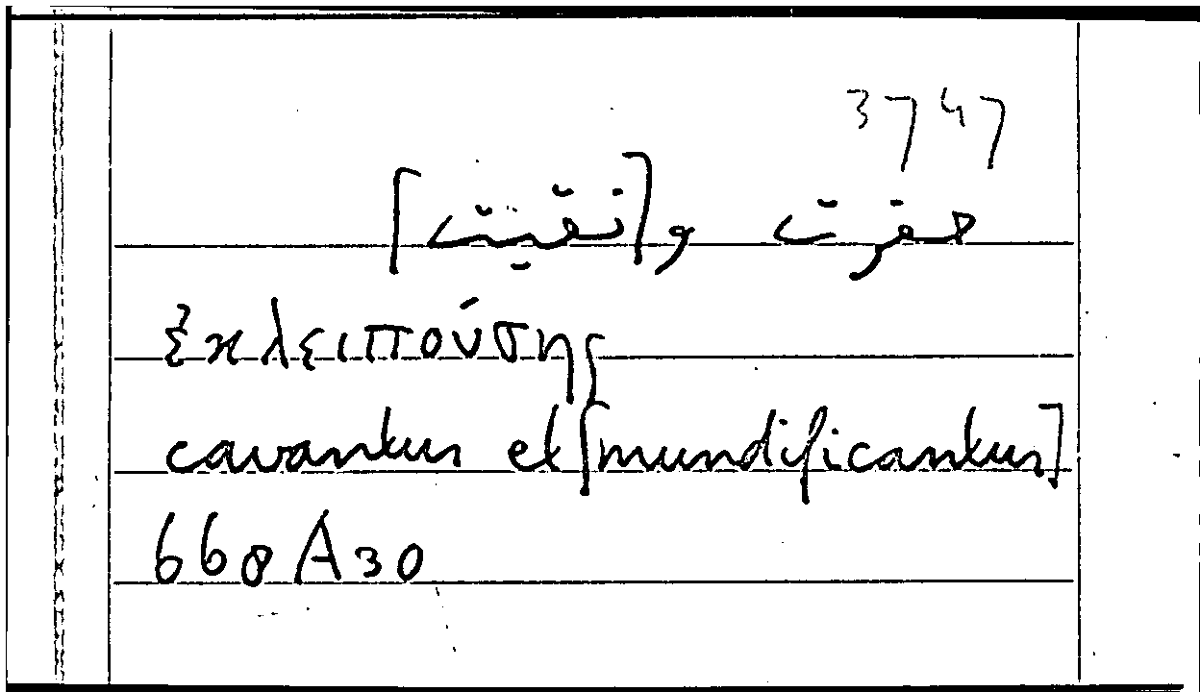 3747
حفرت و[نقيت]
ἐκλειπούσης
cavantur et [mundificantur]
668A30